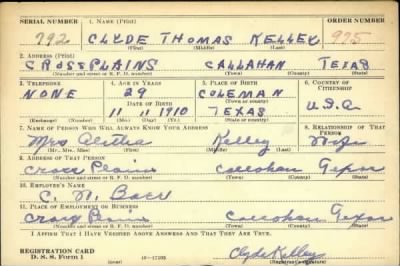 SERIAL NUMBER 1. NAME (Print) ORDER NUMBER
792 CLYDE THOMAS KELLEY 975
(First) (Middle) (Last)
2. ADDRESS (Print)
CROSS PLAINS CALLAHAN TEXAS
(Number and street or R. F. D. number) (Town) (County) (State)
3. TELEPHONE 4. AGE IN YEARS 5. PLACE OF BIRTH 6. COUNTRY OF CITIZENSHIP
NONE 29 COLEMAN
DATE OF BIRTH (Town or county)
11 11 1910 TEXAS U.S.A.
(Exchange) (Number) (Mo.) (Day) (Yr.) (State or country)
7. NAME OF PERSON WHO WILL ALWAYS KNOW YOUR ADDRESS 8. RELATIONSHIP OF THAT PERSON
Mrs Kelley Wife
(Mr., Mrs., Miss) (First) (Middle) (Last)
9. ADDRESS OF THAT PERSON
Cross Plains Callahan Texas
(Number and street or R. F. D. number) (Town) (County) (State)
10. EMPLOYER'S NAME
C. N.
11. PLACE OF EMPLOYMENT OR BUSINESS
Cross Plains Callahan Texas
(Number and street or R. F. D. number) (Town) (County) (State)
I AFFIRM THAT I HAVE VERIFIED ABOVE ANSWERS AND THAT THEY ARE TRUE.
REGISTRATION CARD
D. S. S. Form 1 16—17105 Clyde Kelley
(Registrant's signature)